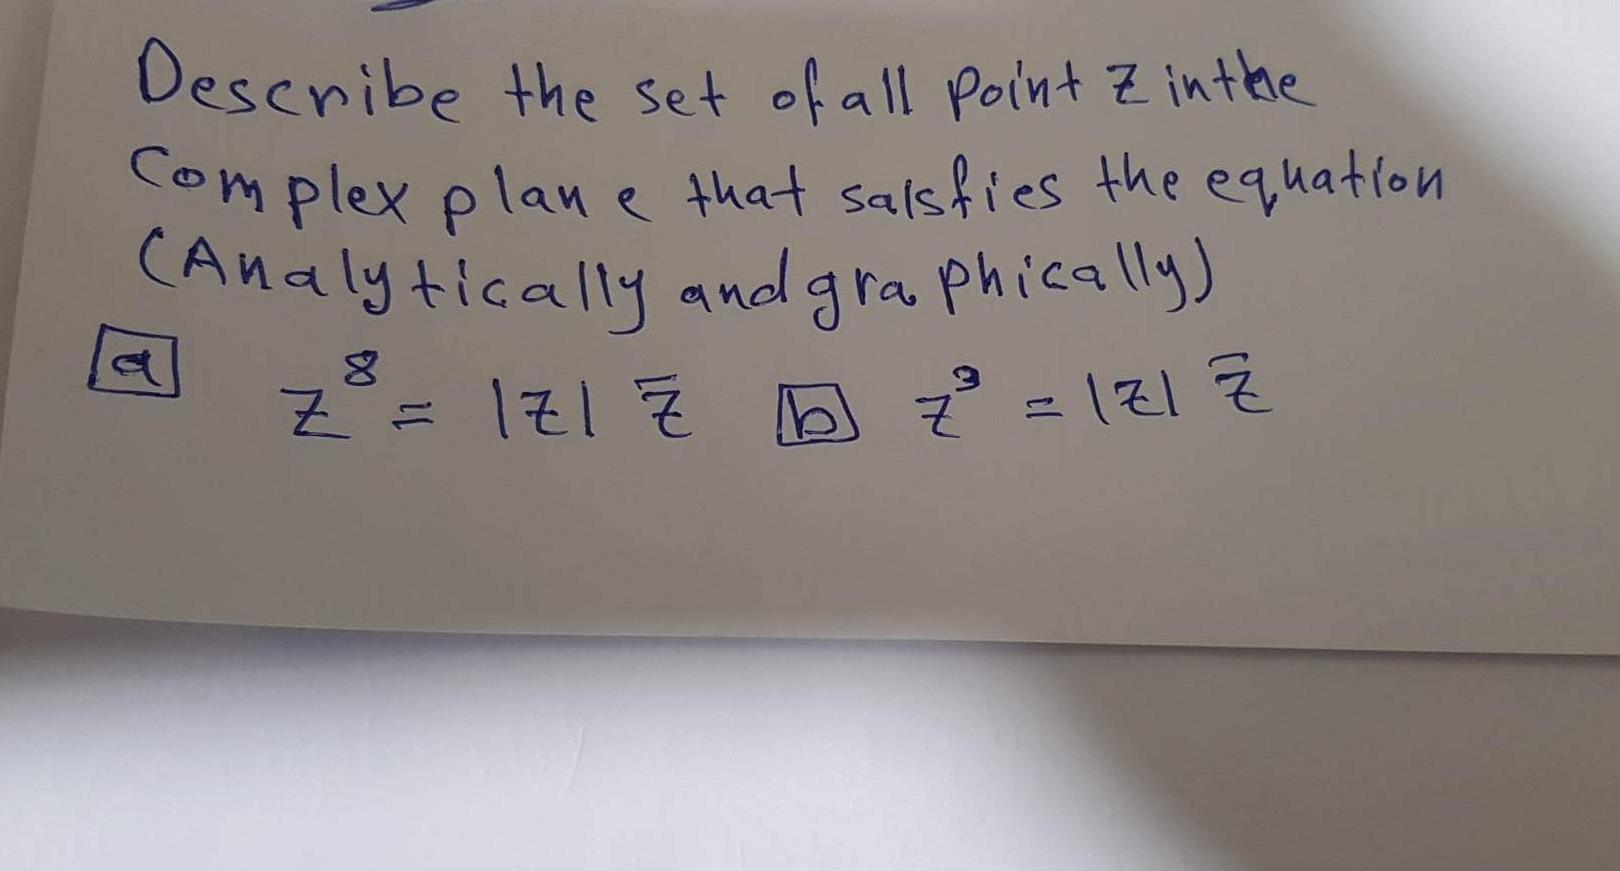 Describe the set of all point z in the
Complex plane that saisfies the equation
(Analytically and graphically)
a z⁸ = |z| z̄ b z³ = |z| z̄